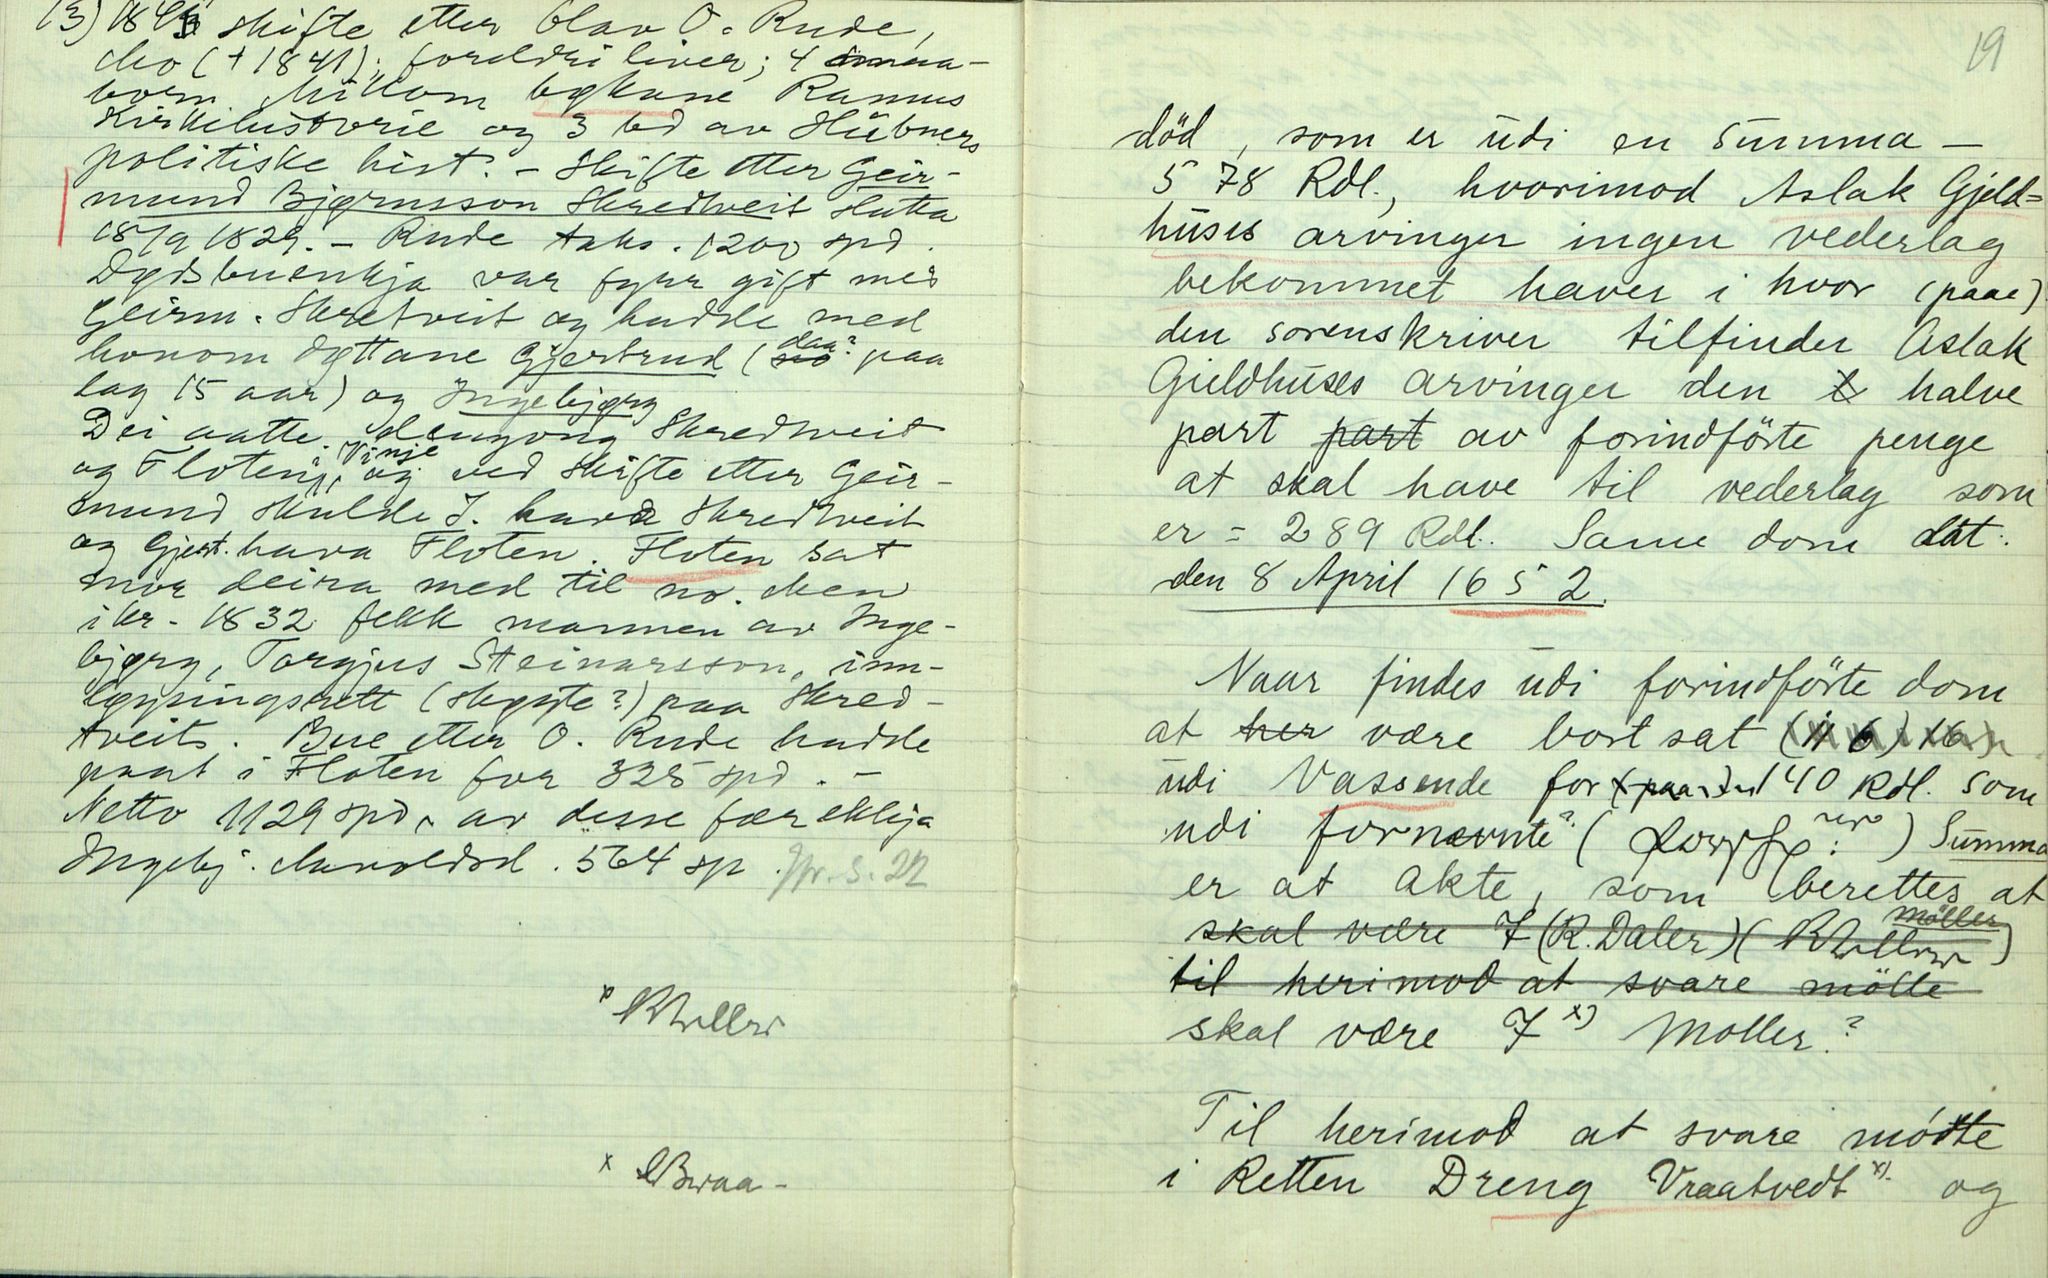 13) 1843 skifte etter Olav O. Rude,
Mo (+ 1841); foreldri liver; 4 smaa-
born. Millom bøkane Ramus
Kirkehistorie og 3 bd av Hübners
politiske hist. – Skifte etter Geir-
mund Bjørnsson Skredtveit slutta
15/9 1829. – Rude taks. 1200 spd.
Dødsbuenkja var fyrr gift med
Geirm. Skretveit og hadde med
honom døttane Gjertrud (daa? paa
lag 15 aar) og Ingebjørg
Dei aatte dengong Skredtveit
og Floten i Vinje, og ved skifte etter Geir-
mund skulde I. hava Skredtveit
og Gjert. hava Floten. Floten sat
mor deira med til no. Men
ikr. 1832 fekk mannen av Inge-
bjørg, Torgjus Steinarsson, inn-
løysingsrett (skøyte?) paa Skred-
tveit. Bue etter O. Rude hadde
pant i Floten for 325 spd. –
Netto 1129 spd, av desse fær ekkja
Ingebj. Aavoldsd. 564 sp. Jfr. s. 22
x
x Braa –
19
död, som er udi en Summa –
578 Rdl., hvorimod Aslak Gjeld=
huses arvinger ingen vederlag
bekommet haver i hvor (paae)
den sorenskriver tilfinder Aslak
Gieldhuses arvinger den halve
part part av forindförte penge
at skal have til vederlag som
er = 289 Rdl. Same dom dat.
den 8 April 1652.
Naar findes udi forindförte dom
at her være bortsat
udi Vassende for 140 Rdl. som
udi fornevnte? ( ) Summa
er at akte, som berettes at
skal være 7 (R. Daler) ( Möller )
til herimod at svare mötte
skal være 7 x) Moller?
Til herimod at svare mötte
i Retten Dreng Vraatvedt x) og